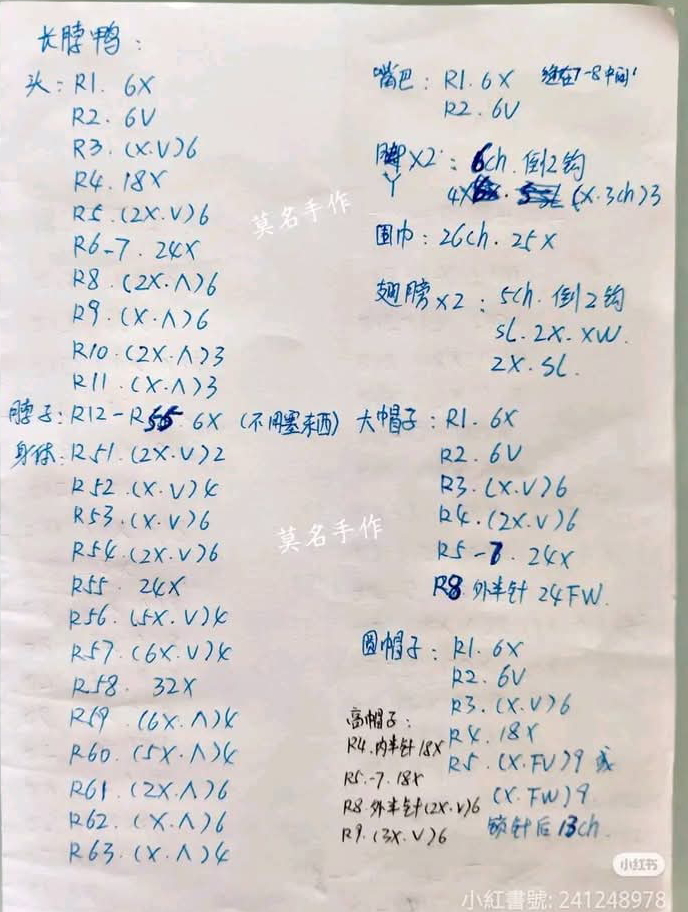 长脖鸭:
头: R1. 6X
R2. 6V
R3. (X.V)6
R4. 18X
R5. (2X.V)6
R6-7. 24X
R8. (2X.Λ)6
R9. (X.Λ)6
R10. (2X.Λ)3
R11. (X.Λ)3
脖子: R12-R 6X (不用塞东西)
身体: R51. (2X.V)2
R52. (X.V)4
R53. (X.V)6
R54. (2X.V)6
R55 24X
R56. (5X.V)4
R57. (6X.V)4
R58. 32X
R59. (6X.Λ)4
R60. (5X.Λ)4
R61. (2X.Λ)6
R62. (X.Λ)6
R63. (X.Λ)4
嘴巴: R1. 6X 缝在7-8中间
R2. 6V
脚X2: 6ch. 倒2钩
4X. (X.3ch)3
围巾: 26ch. 25X
翅膀X2: 5ch. 倒2钩
SL. 2X. XW.
2X. SL.
大帽子: R1. 6X
R2. 6V
R3. (X.V)6
R4. (2X.V)6
R5-7. 24X
R8 外半针 24FW.
圆帽子: R1. 6X
R2. 6V
R3. (X.V)6
R4. 18X
R5. (X.FV)9 或
(X.FW)9
锁针后13ch.
高帽子:
R4. 内半针 18X
R5.-7. 18X
R8. 外半针(2X.V)6
R9. (3X.V)6
莫名手作
莫名手作
小红书
小紅書號: 241248978